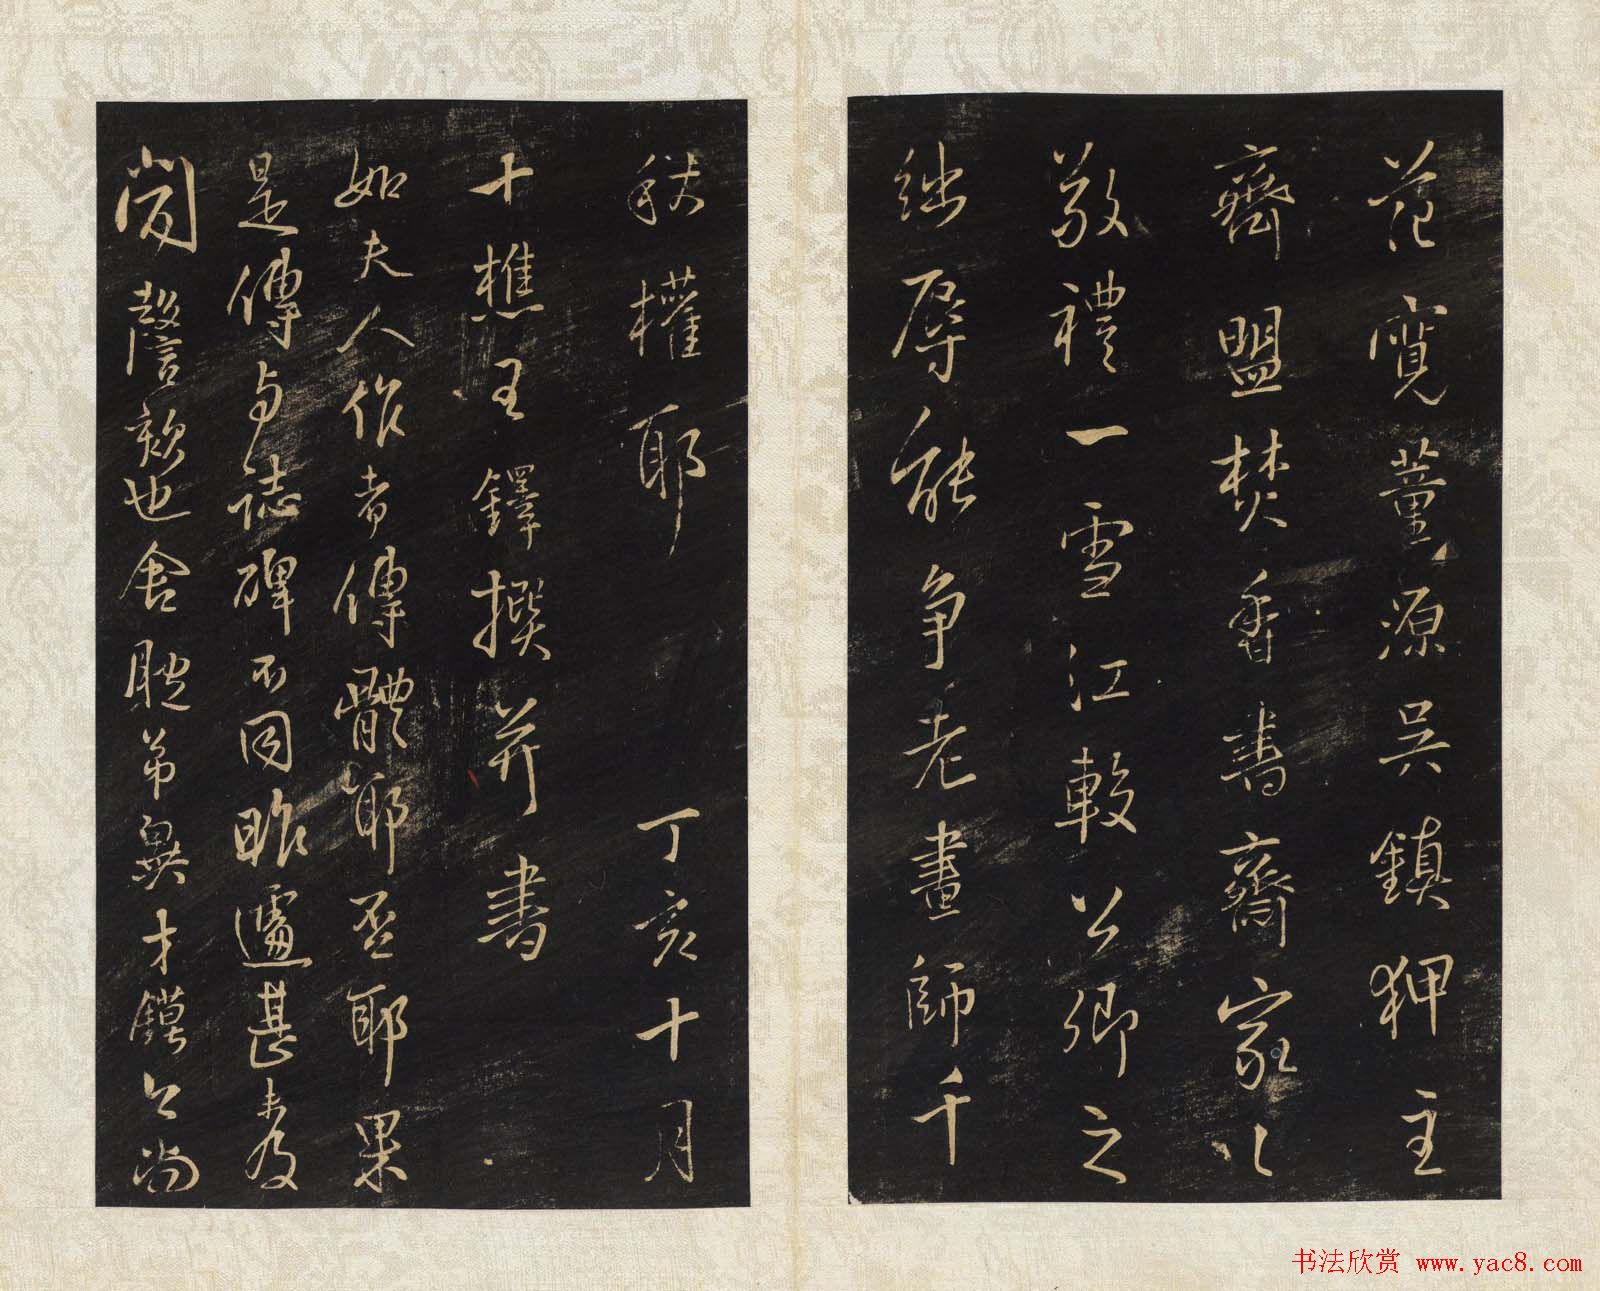 范寬董源吳鎮狎主
齊盟焚香書齋家以
敬禮一雪江較公卿之
絀辱能爭老畫師千
秋權耶 丁亥十月
十樵王鐸撰并書
如夫人作者傳體耶否耶果
是傳與誌碑不同昨遽甚未及
閱
歎也舍
弟
才
公尚
书法欣赏 www.yac8.com